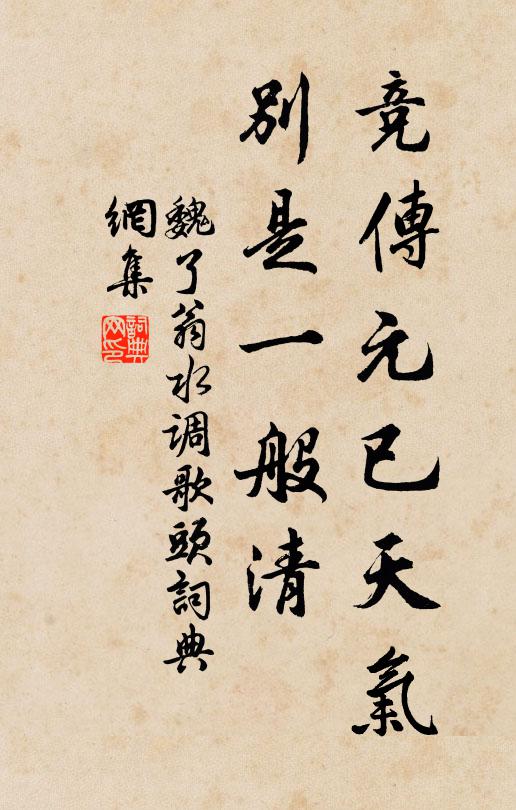 竞傳元已天氣
別是一般清
魏了翁水调歌頭詞典
網集
詞典网印